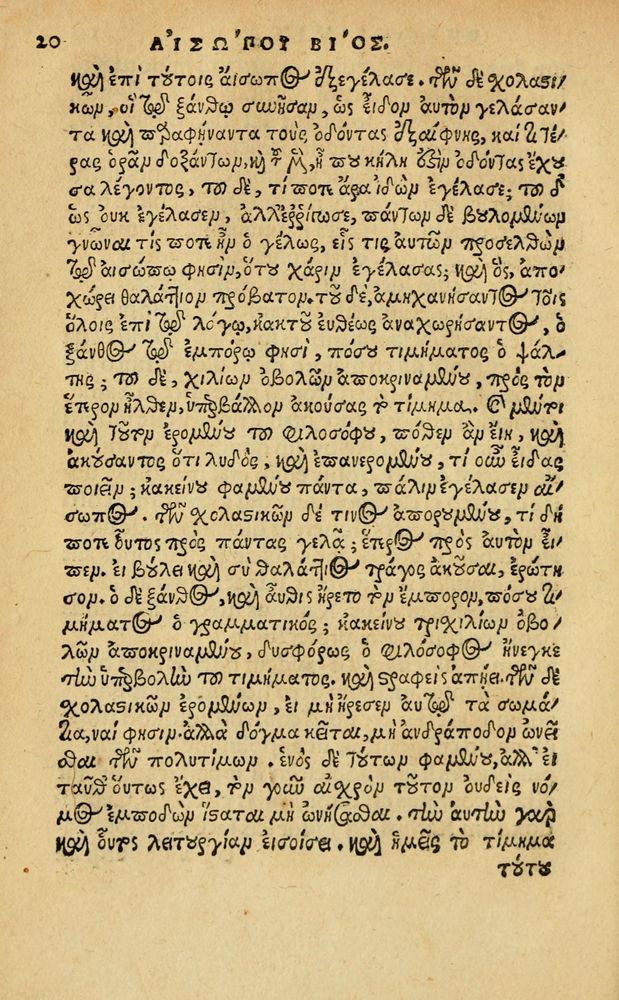 20 ΑἸΣΏΠΟΥ ΒΊΟΣ.
καὶ ἐπὶ τούτοις ἄισωπος ἐξεγέλασε. τῶν δὲ χολαστι
κῶν, οἳ τῷ ξάνθῳ συνῆσαν, ὡς εἶδον αὐτὸν γελάσαν
τα καὶ παραφήναντα τοὺς ὀδόντας ἐξαίφνης, καὶ τέ
ρας ὁρᾶν δοξάντων, καὶ τοῦ μὲν, ἦ που κήλη ἐστὶν ὀδόντας ἔχου
σα λέγοντος, τοῦ δὲ, τί ποτε ἄρα ἰδὼν ἐγέλασε; τοῦ δ
ὡς οὐκ ἐγέλασεν, ἀλλ' ἐρρίγωσε, πάντων δὲ βουλομένων
γνῶναι τίς ποτε ἦν ὁ γέλως, εἷς τις αὐτῶν προσελθὼν
τῷ αἰσώπῳ φησὶν, ὅτου χάριν ἐγέλασας; καὶ ὃς, ἀπο
χώρει θαλάττιον πρόβατον. τοῦ δὲ, ἀμηχανήσαντος τοῖς
ὅλοις ἐπὶ τῷ λόγῳ, κἀκ τοῦ εὐθέως ἀναχωρήσαντος, ὁ
ξάνθος τῷ ἐμπόρῳ φησὶ, πόσου τιμήματος ὁ ψάλ
της; τοῦ δὲ, χιλίων ὀβολῶν ἀποκριναμένου, πρὸς τὸν
ἕτερον ἦλθεν, ὑπερβάλλον ἀκούσας τὸ τίμημα.
καὶ τοῦτον ἐρομένου τοῦ φιλοσόφου, πόθεν ἂν εἴη, καὶ
ἀκούσαντος ὅτι λυδός, καὶ ἐπανερομένου, τί οὖν εἶδας
ποιεῖν; κἀκείνου φαμένου πάντα, πάλιν ἐγέλασεν αἴ
σωπος. τῶν χολαστικῶν δέ τινος ἀπορουμένου, τί δή
ποτε οὗτος πρὸς πάντας γελᾷ; ἕτερος πρὸς αὐτὸν εἶ
πεν. εἰ βούλει καὶ σὺ θαλάττιος τράγος ἀκοῦσαι, ἐρώτη
σον. ὁ δὲ ξάνθος, καὶ αὖθις ἤρετο τὸν ἔμπορον, πόσου τι
μήματος ὁ γραμματικός; κἀκείνου τρισχιλίων ὀβο
λῶν ἀποκριναμένου, δυσφόρως ὁ φιλόσοφος ἤνεγκε
τὴν ὑπερβολὴν τοῦ τιμήματος. καὶ στραφεὶς ἀπῄει. τῶν δὲ
χολαστικῶν ἐρομένων, εἰ μὴ ἤρεσεν αὐτῷ τὰ σωμά
τια, ναί φησιν. ἀλλὰ δόγμα κεῖται, μὴ ἀνδράποδον ὠνεῖ
σθαι τῶν πολυτίμων. ἑνὸς δὲ τούτων φαμένου, ἀλλ' εἰ
ταῦθ' οὕτως ἔχει, τὸν γοῦν αἰσχρὸν τοῦτον οὐδεὶς νό
μος ἐμποδὼν ἵσταται μὴ ὠνήσασθαι. τὴν αὐτὴν γὰρ
καὶ οὗτος λειτουργίαν εἰσοίσει. καὶ ἡμεῖς τὸ τίμημα
τούτου